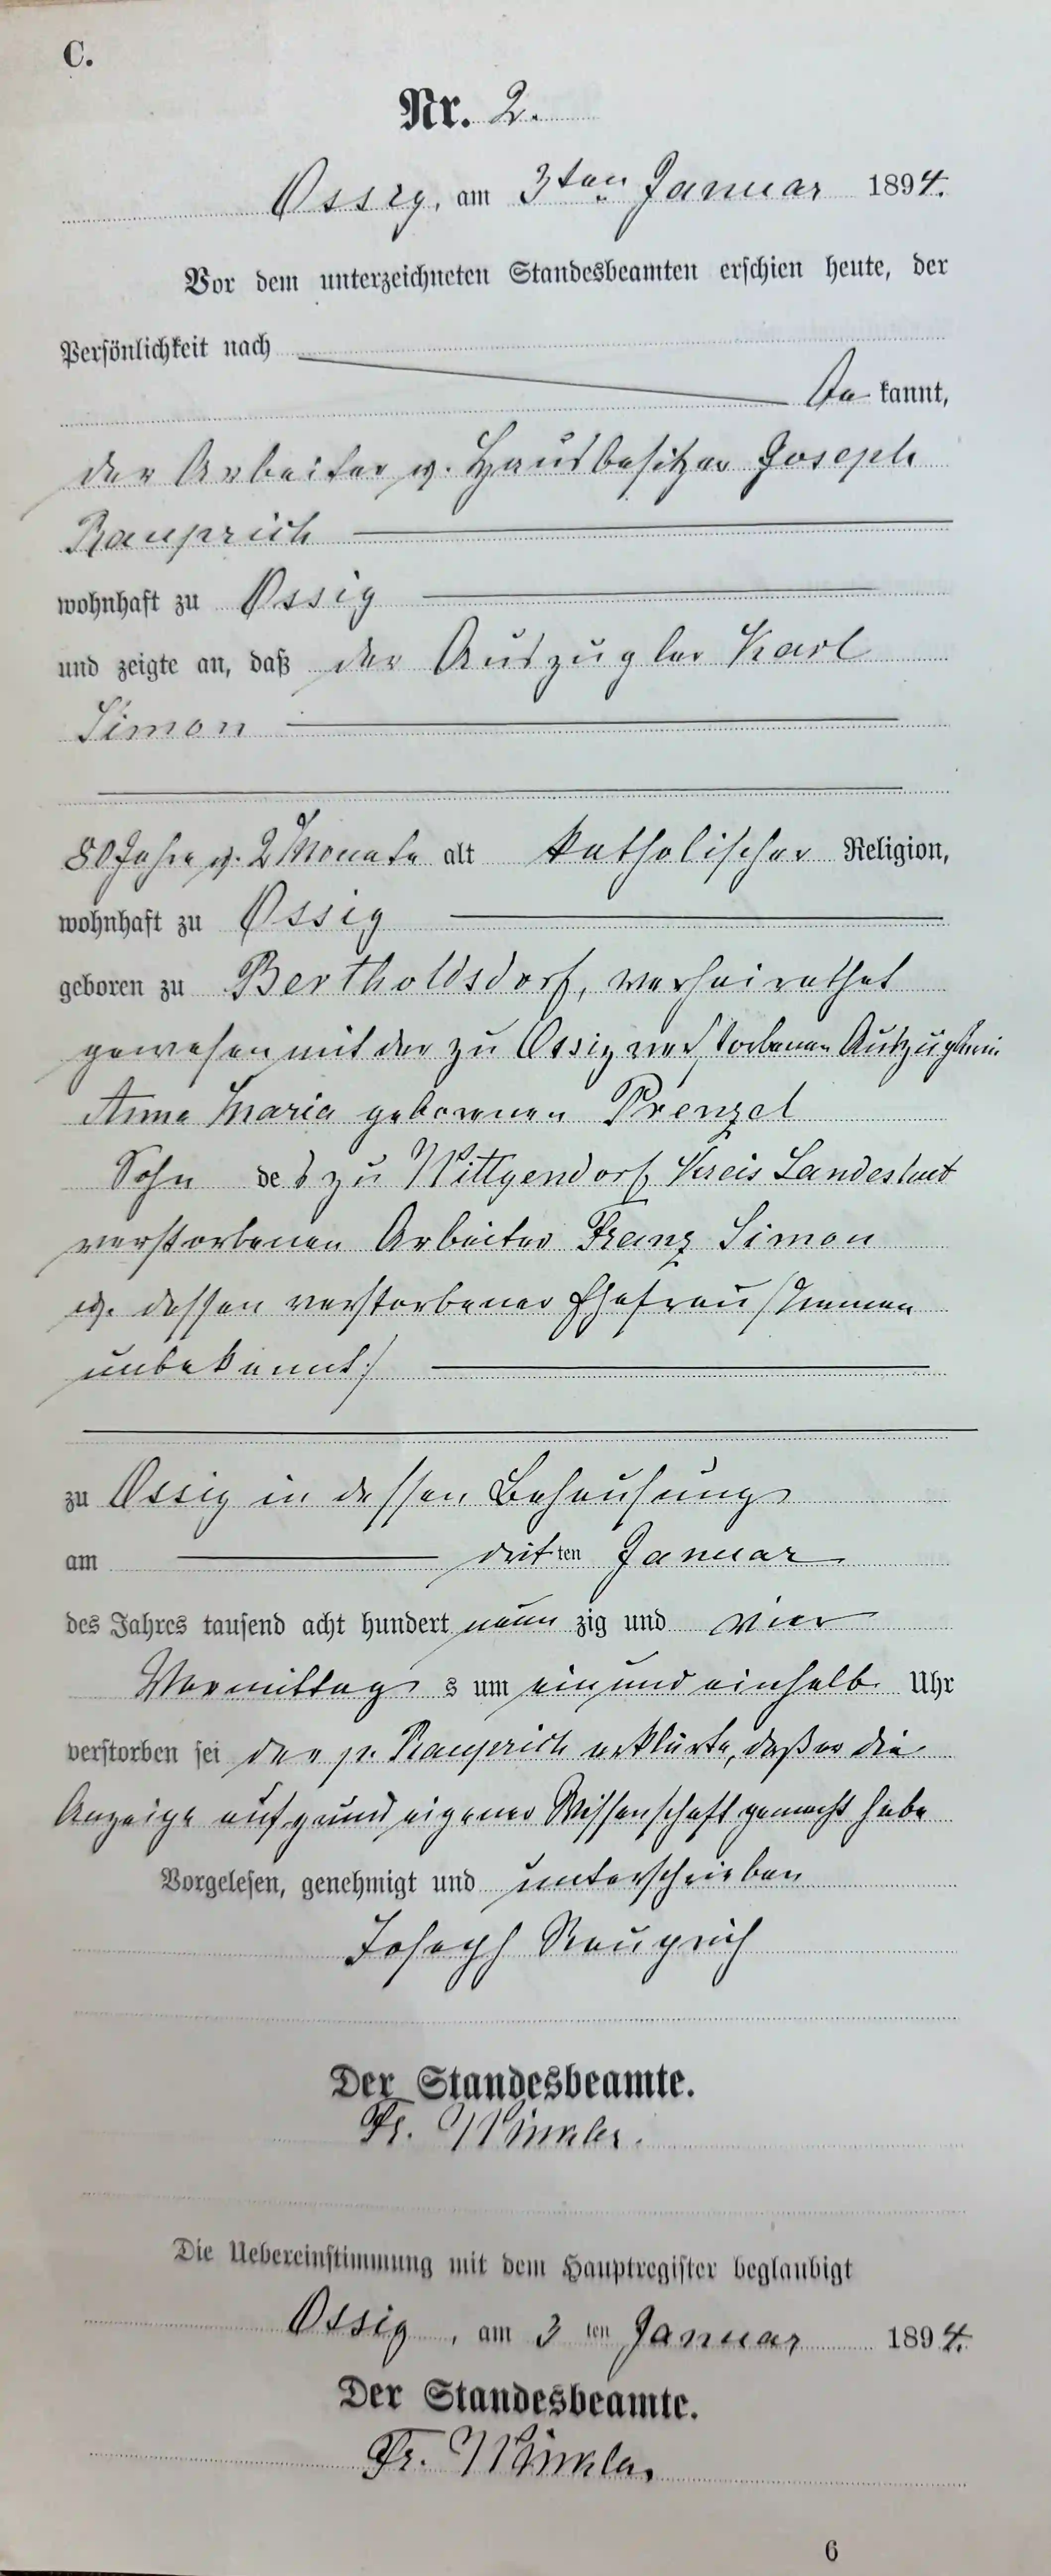 C.
Nr. 2.
Ossig, am 3ten Januar 1894.
Vor dem unterzeichneten Standesbeamten erschien heute, der
Persönlichkeit nach
be kannt,
der Arbeiter u. Hausbesitzer Joseph
Rauprich
wohnhaft zu Ossig
und zeigte an, daß der Auszügler Karl
Simon
80 Jahre u. 2 Monate alt katholischer Religion,
wohnhaft zu Ossig
geboren zu Bertholdsdorf, verheirathet
gewesen mit der zu Ossig verstorbenen Auszüglerin
Anna Maria geborenen Prenzel
Sohn des zu Wittgendorf Kreis Landeshut
verstorbenen Arbeiter Franz Simon
u. dessen verstorbener Ehefrau /Namen
unbekannt:/
zu Ossig in dessen Behausung
am dritten Januar
des Jahres tausend acht hundert neun zig und vier
Vormittag s um ein und einhalb Uhr
verstorben sei der p. Rauprich erklärte, daß er die
Anzeige auf grund eigener Wissenschaft gemacht habe
Vorgelesen, genehmigt und unterschrieben
Joseph Rauprich
Der Standesbeamte.
Fr. Winkler.
Die Uebereinstimmung mit dem Hauptregister beglaubigt
Ossig, am 3 ten Januar 1894.
Der Standesbeamte.
Fr. Winkler
6